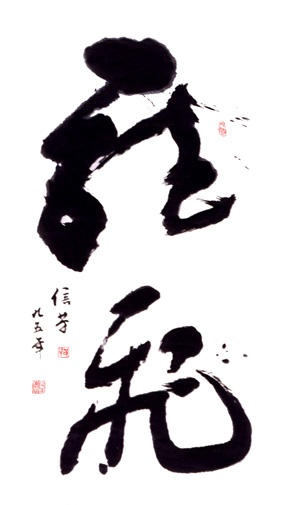 龍飛
信芳
九五年